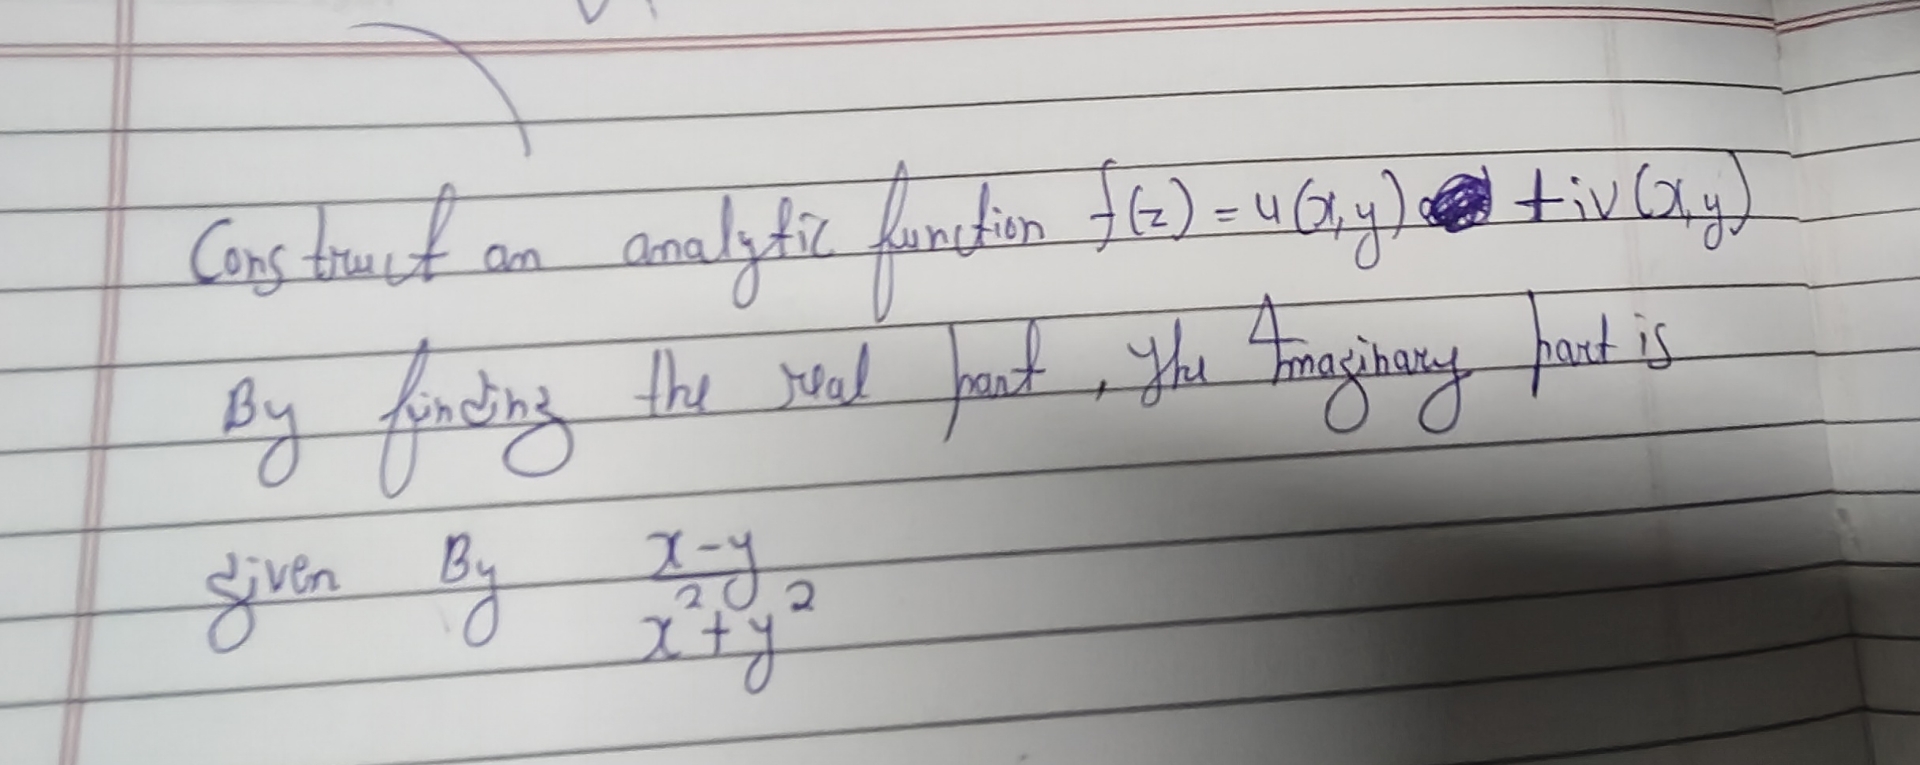 Construct an analytic function f(z) = u(x,y) + iv(x,y)
By finding the real part, The Imaginary part is
given By x-y
x²+y²